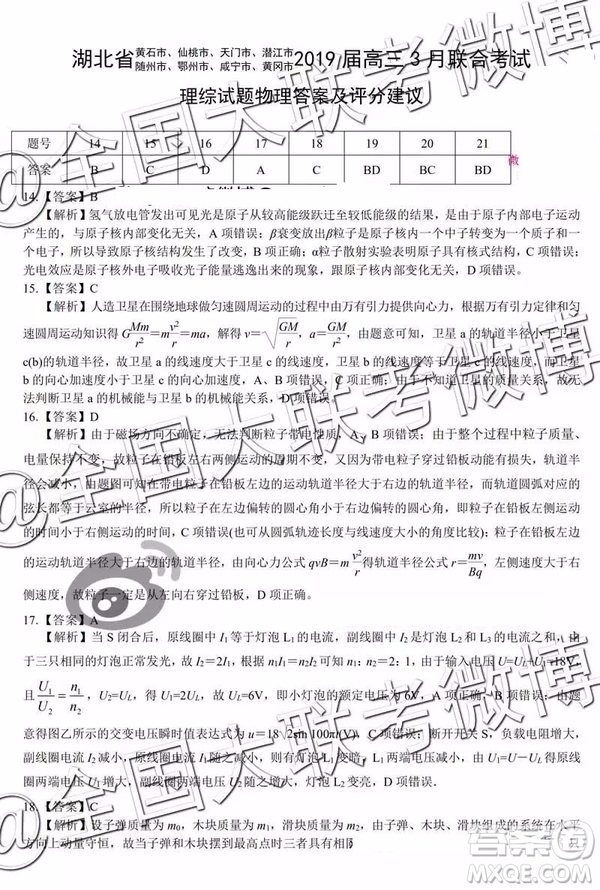 湖北省黄石市、仙桃市、天门市、潜江市、随州市、鄂州市、咸宁市、黄冈市2019届高三3月联合考试
理综试题物理答案及评分建议
题号 14 15 16 17 18 19 20 21
答案 B C D A C BD BC BD
14.【答案】B
【解析】氢气放电管发出可见光是原子从较高能级跃迁至较低能级的结果,是由于原子内部电子运动
产生的,与原子核内部变化无关,A项错误;β衰变放出β粒子是原子核内一个中子转变为一个质子和一
个电子,所以导致原子核结构发生了改变,B项正确;α粒子散射实验表明原子具有核式结构,C项错误;
光电效应是原子核外电子吸收光子能量逸出的现象,跟原子核内部变化无关,D项错误。
15.【答案】C
【解析】人造卫星在围绕地球做匀速圆周运动的过程中由万有引力提供向心力,根据万有引力定律和匀
速圆周运动知识得G Mm/r²=m v²/r=ma,解得v=√(GM/r),a=GM/r²,由题意可知,卫星a的轨道半径小于卫星
c(b)的轨道半径,故卫星a的线速度大于卫星c的线速度,卫星b的线速度等于卫星c的线速度,而卫星
b的向心加速度小于卫星c的向心加速度,A、B项错误,C项正确;由于不知道三颗卫星的质量,故无
法判断卫星a的机械能与卫星b的机械能大小,D项错误。
16.【答案】D
【解析】由于磁场方向不确定,无法判断粒子带电性质,A、B项错误;由于整个过程中粒子质量、
电量保持不变,故根据粒子在铅板左右两侧运动的周期不变,又因为带电粒子穿过铅板动能有损失,轨道半
径会减小,由题图可知,粒子在铅板左边的运动轨道半径大于右边的轨道半径,而轨道圆弧对应的弦
长都等于云室的半径,所以粒子在左边偏转的圆心角小于在右边偏转的圆心角,即粒子在左侧运动的时间
小于在右侧运动的时间,C项错误(也可从圆弧轨迹长度与线速度大小的角度比较);粒子在铅板左边
的运动轨道半径大于右边的轨道半径,由向心力公式qvB=m v²/r得轨道半径公式r=mv/Bq,左侧速度大于右
侧速度,故粒子一定是从左向右穿过铅板,D项正确。
17.【答案】A
【解析】当S闭合后,原线圈中I₁等于灯泡L₁的电流,副线圈中I₂等于灯泡L₂和L₃的电流之和,由
于三只相同的灯泡正常发光,故I₂=2I₁,根据I₁n₁=I₂n₂可知n₁:n₂=2:1,由于输入电压U=U_L+U₁=18V,
且U₁/U₂=n₁/n₂,U₂=U_L,得U₁=2U_L,故U_L=6V,即小灯泡的额定电压为6V,A项正确,B项错误;由题
意得图乙所示的交变电压瞬时值表达式为u=18√2sin 100πt(V),C项错误;断开开关S,负载电阻增大,
副线圈电流I₂减小,原线圈电流I₁减小,故灯泡L₁两端电压减小,灯泡L₁变暗,由U₁=U-U_L得原
线圈电压U₁增大,副线圈电压U₂增大,灯泡L₂变亮,D项错误。
18.【答案】C
【解析】设子弹质量为m₀,木块质量为m,滑块质量为M,由于子弹、木块、滑块组成的系统在水平
方向上动量守恒,故当子弹和木块摆到最高点时三者具有相